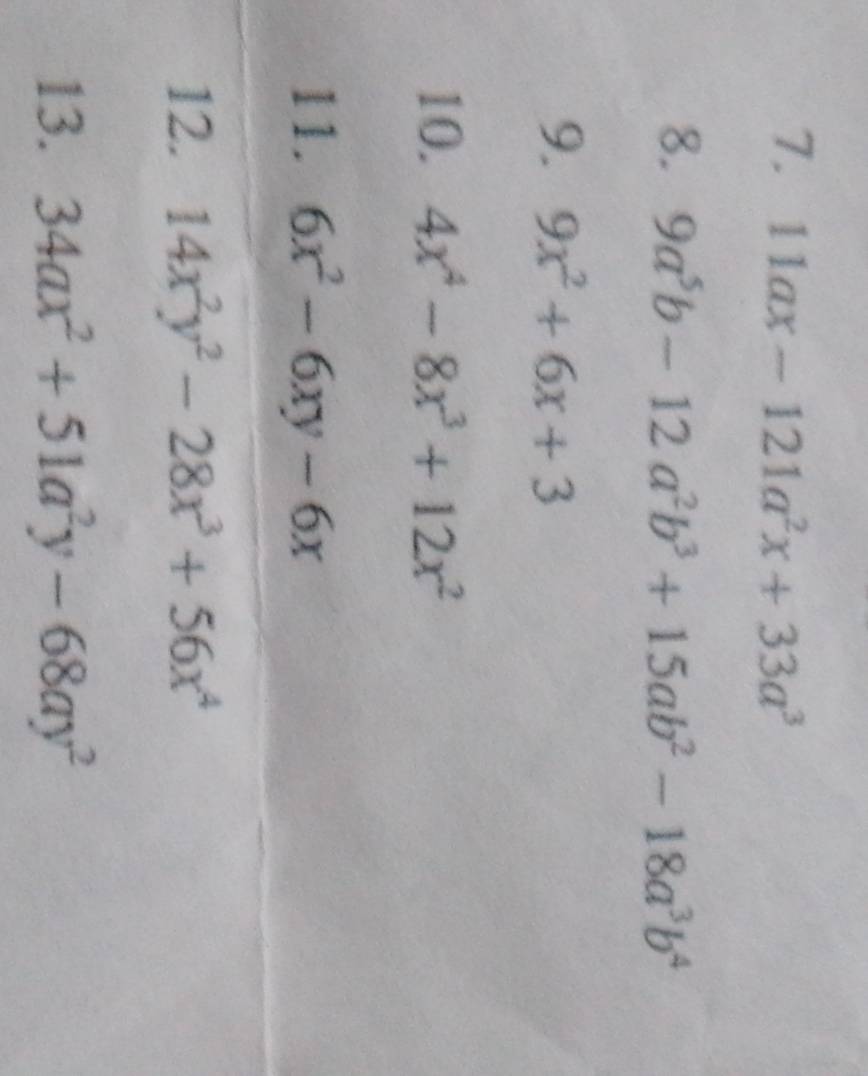 7. 11ax – 121a²x + 33a³
8. 9a⁵b – 12 a²b³ + 15ab² – 18a³b⁴
9. 9x² + 6x + 3
10. 4x⁴ – 8x³ + 12x²
11. 6x² – 6xy – 6x
12. 14x²y² – 28x³ + 56x⁴
13. 34ax² + 51a²y – 68ay²